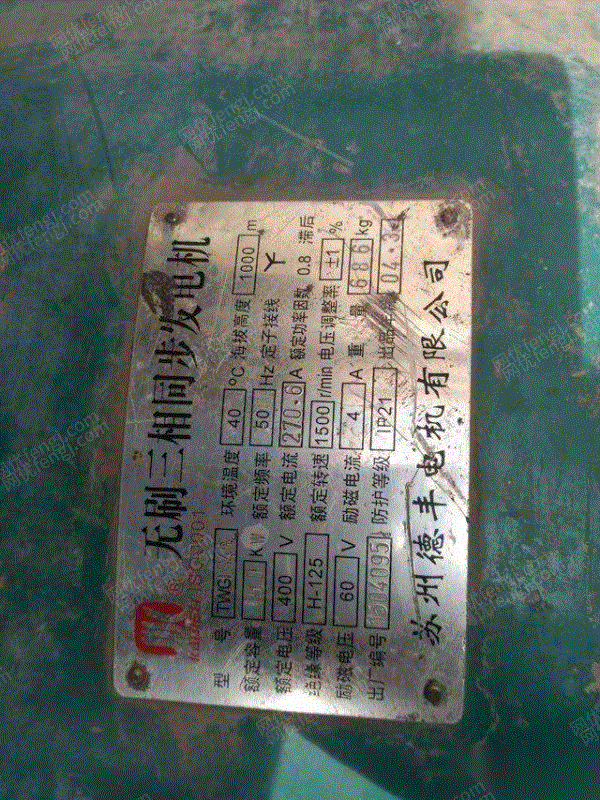 无刷三相同步发电机
型号 TWG 环境温度 40 ℃ 海拔高度 1000 m
额定容量 KW 额定频率 50 Hz 定子接线 Y
额定电压 400 V 额定电流 270.6 A 额定功率因数 0.8 滞后
绝缘等级 H-125 额定转速 1500 r/min 电压调整率 ±1 %
励磁电压 60 V 励磁电流 4 A 重量 686 kg
出厂编号 防护等级 IP21 出品年编 04.3
苏州德丰电机有限公司